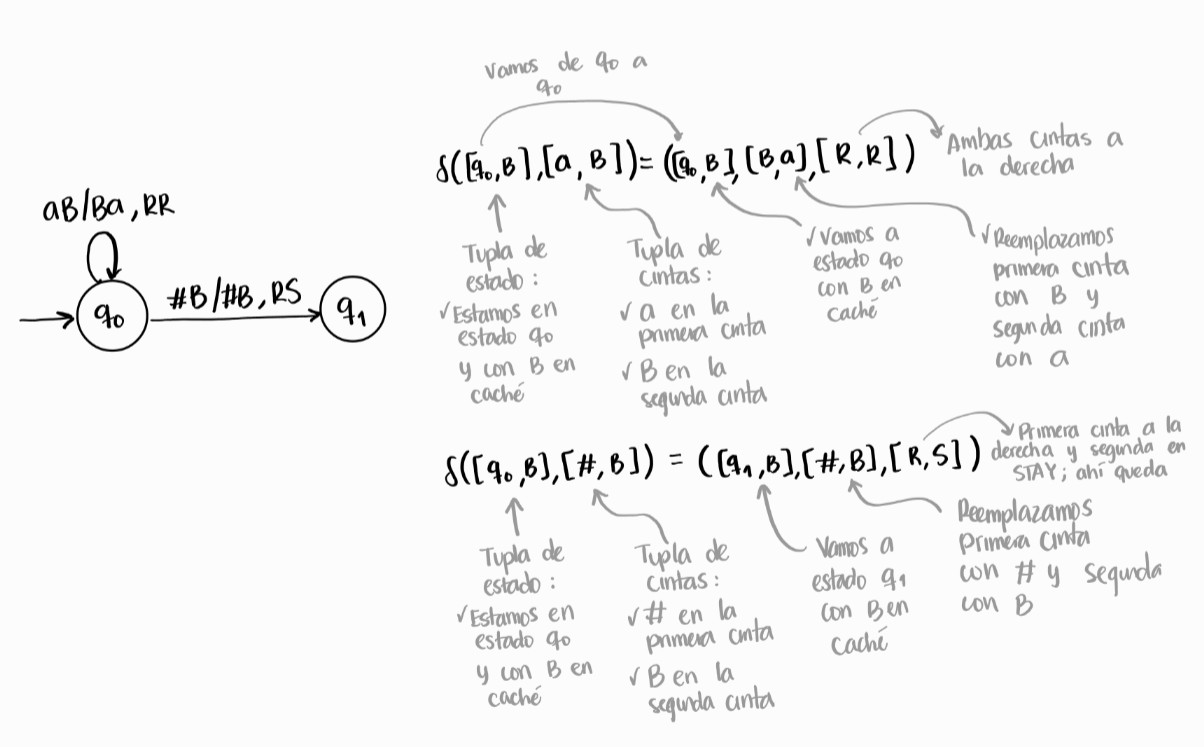 Vamos de q0 a
q0
δ([q0,B],[a,B])=([q0,B],[B,a],[R,R])
Ambas cintas a
la derecha
aB/Ba,RR
q0
#B/#B,RS
q1
Tupla de
estado:
✓Estamos en
estado q0
y con B en
caché
Tupla de
cintas:
✓ a en la
primera cinta
✓ B en la
segunda cinta
✓Vamos a
estado q0
con B en
caché
✓Reemplazamos
primera cinta
con B y
segunda cinta
con a
δ([q0,B],[#,B]) = ([q1,B],[#,B],[R,S])
Primera cinta a la
derecha y segunda en
STAY; ahí queda
Tupla de
estado:
✓Estamos en
estado q0
y con B en
caché
Tupla de
cintas:
✓ # en la
primera cinta
✓ B en la
segunda cinta
Vamos a
estado q1
con B en
caché
Reemplazamos
Primera cinta
con # y segunda
con B